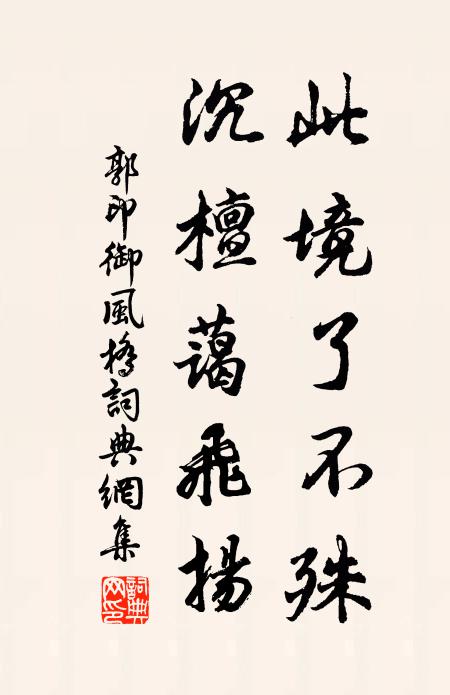 此境了不殊
沉檀藹飛揚
郭印御風橋詞典網集
詞典網印